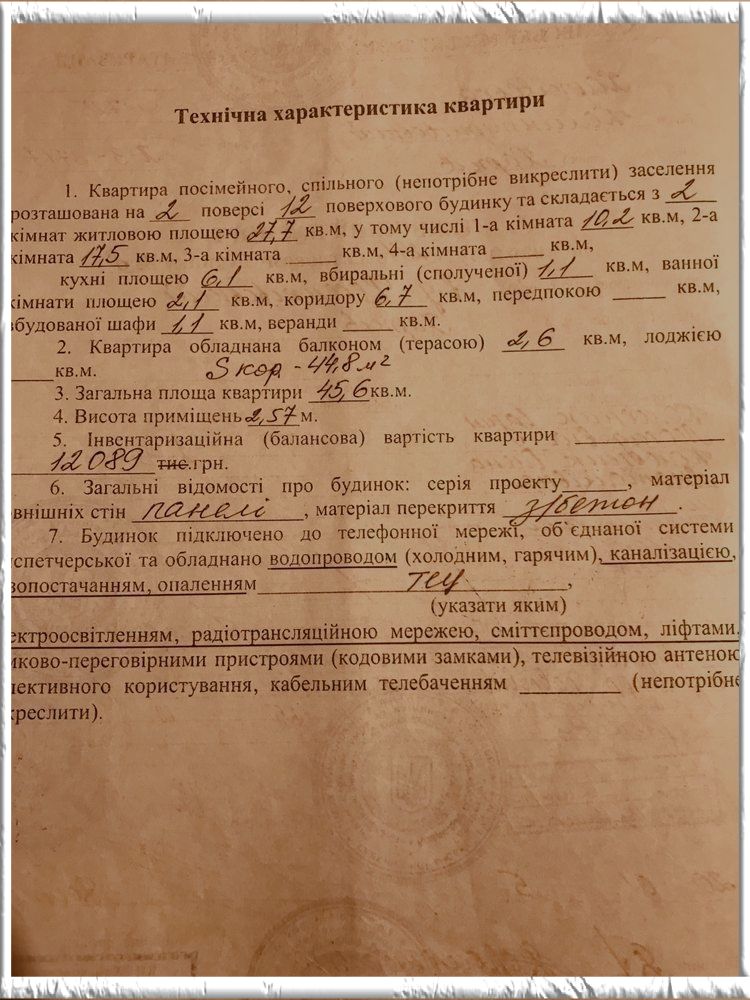 Технічна характеристика квартири
1. Квартира посімейного, спільного (непотрібне викреслити) заселення
розташована на 2 поверсі 12 поверхового будинку та складається з 2
кімнат житловою площею 27,7 кв.м, у тому числі 1-а кімната 10,2 кв.м, 2-а
кімната 17,5 кв.м, 3-а кімната _____ кв.м, 4-а кімната _____ кв.м,
кухні площею 6,1 кв.м, вбиральні (сполученої) 1,1 кв.м, ванної
кімнати площею 2,1 кв.м, коридору 6,7 кв.м, передпокою _____ кв.м,
вбудованої шафи 1,1 кв.м, веранди _____ кв.м.
2. Квартира обладнана балконом (терасою) 2,6 кв.м, лоджією
_____кв.м. S кор - 44,8 м²
3. Загальна площа квартири 45,6 кв.м.
4. Висота приміщень 2,57 м.
5. Інвентаризаційна (балансова) вартість квартири _____
12089 тис.грн.
6. Загальні відомості про будинок: серія проекту _____, матеріал
овнішніх стін панелі, матеріал перекриття з/бетон.
7. Будинок підключено до телефонної мережі, об`єднаної системи
успетчерської та обладнано водопроводом (холодним, гарячим), каналізацією,
зопостачанням, опаленням тец,
(указати яким)
ектроосвітленням, радіотрансляційною мережею, сміттєпроводом, ліфтами,
мково-переговірними пристроями (кодовими замками), телевізійною антеною
лективного користування, кабельним телебаченням _____ (непотрібне
креслити).